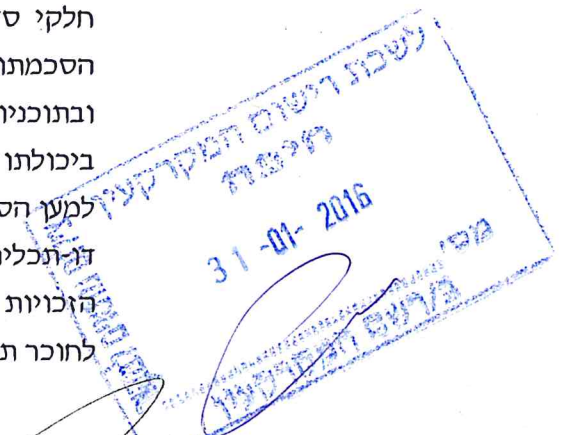 חלקי
הסכמתו
ובתוכניו
ביכולתו
למען הס
דו-תכלי
הזכויות
לחוכר ת
לשכת רישום המקרקעין
חיפה
31 -01- 2016
מס'